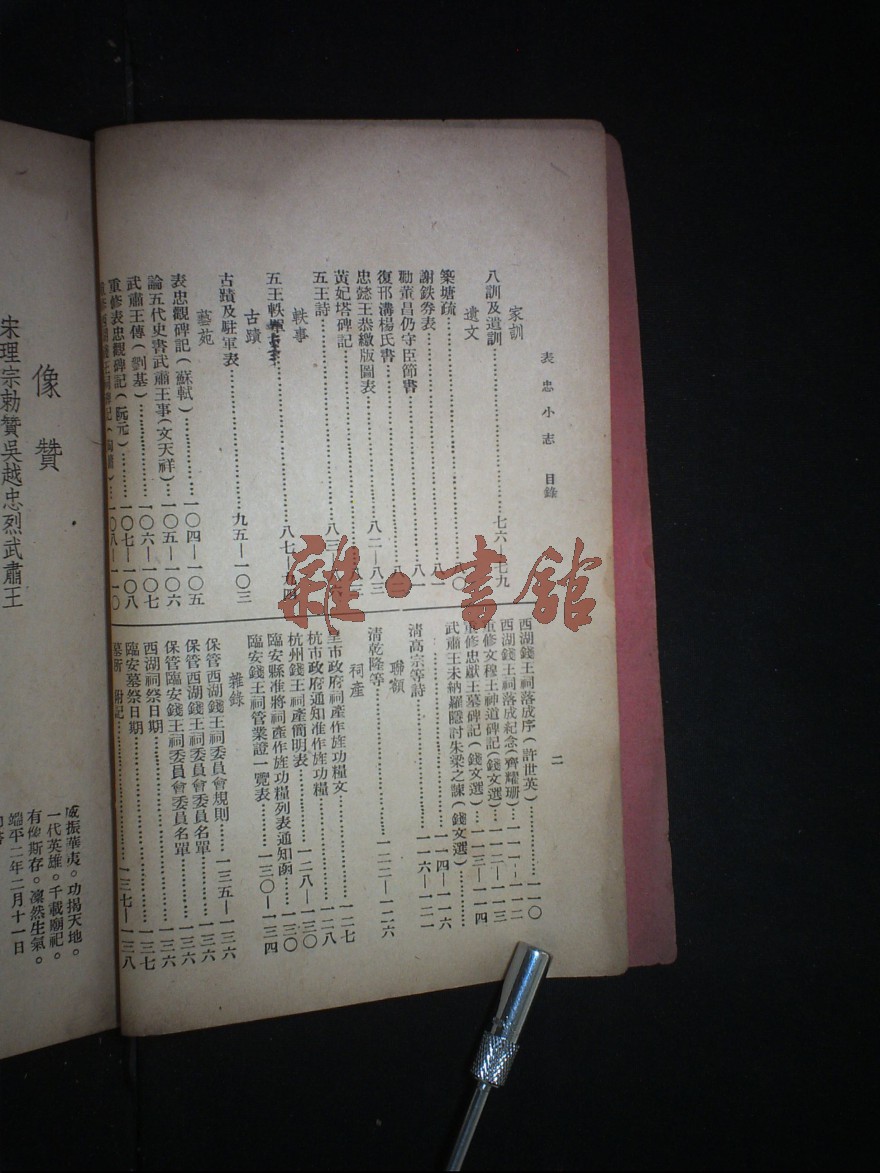 表忠小志 目錄
家訓
八訓及遺訓……七六—七九
遺文
築塘疏……八〇
謝鉄券表……八一
勸董昌仍守臣節書……八一
復邗溝楊氏書……八二
忠懿王恭繳版圖表……八二—八三
黃妃塔碑記……八三
五王詩……八三—
軼事
五王軼……八七—九四
古蹟
古蹟及駐軍表……九五—一〇三
藝苑
表忠觀碑記(蘇軾)……一〇四—一〇五
論五代史書武肅王事(文天祥)……一〇五—一〇六
武肅王傳(劉基)……一〇六—一〇七
重修表忠觀碑記(阮元)……一〇七—一〇八
重修西湖錢王祠碑記……一〇八—一一〇
二
西湖錢王祠落成序(許世英)……一一〇
西湖錢王祠落成紀念(齊耀珊)……一一一—一一二
重修文穆王神道碑記(錢文選)……一一二—一一三
重修忠獻王墓碑記(錢文選)……一一三—一一四
武肅王未納羅隱討朱梁之諫(錢文選)……一一四—一一六
清高宗等詩……一一六—一二一
聯額
清乾隆等……一二二—一二六
祠產
呈市政府祠產作旌功糧文……一二七
杭市政府通知准作旌功糧……一二八
杭州錢王祠產簡明表……一二八—一三〇
臨安縣准將祠產作旌功糧列表通知函……一三〇
臨安錢王祠管業證一覽表……一三〇—一三四
雜錄
保管西湖錢王祠委員會規則……一三五—一三六
保管西湖錢王祠委員會委員名單……一三六
保管臨安錢王祠委員會委員名單……一三六
西湖祠祭日期……一三六
臨安墓祭日期……一三七
附記……一三七—一三八
像贊
宋理宗勅贊吳越忠烈武肅王
威振華夷。功揭天地。
一代英雄。千載廟祀。
有像斯存。凜然生氣。
端平二年二月十一日
雜·書館